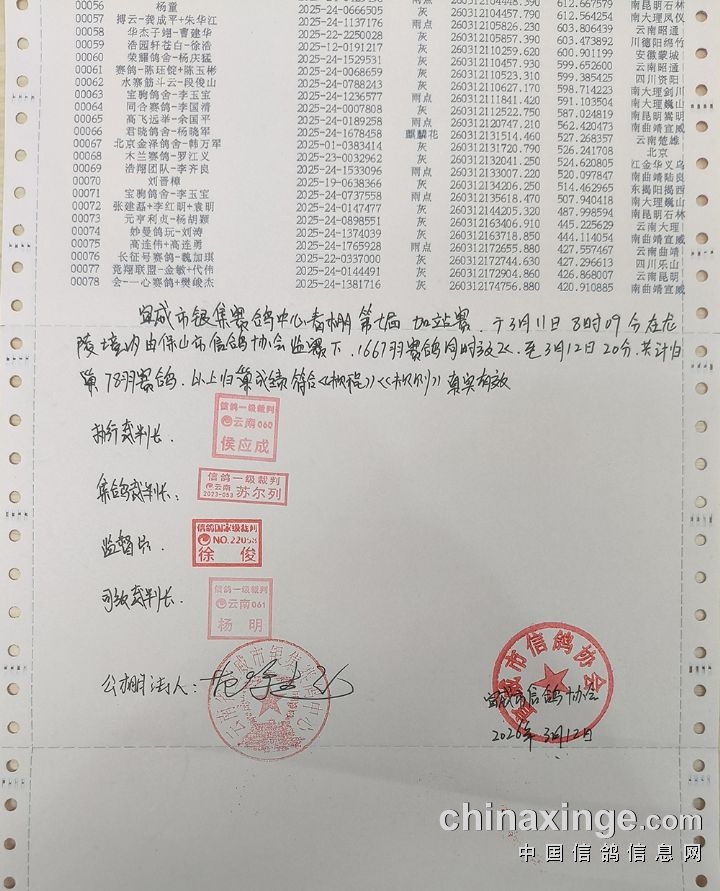 00056 杨童 2025-24-0666505 灰 260312104457.980 612.667579 南昆明石林
00057 搏云-龚成平+朱华江 2025-24-1137176 雨点 260312104757.420 610.864439 南大理凤仪
00058 华杰子翊-曹建华 2025-22-2250028 灰 260312105826.230 603.809639 云南昭通
00059 浩园轩苍白-徐浩 2025-12-0191217 灰 260312105857.390 603.473892 川德阳绵竹
00060 荣耀鸽舍-杨庆猛 2025-24-1529531 灰 260312110249.260 600.991199 安徽蒙城
00061 赛鸽-陈珏锭+陈玉彬 2025-24-0068659 灰 260312110457.930 599.652600 云南昭通
00062 水寨筋斗云-段俊山 2025-24-0788243 灰 260312110523.310 599.385425 四川资阳
00063 宝驹鸽舍-李玉宝 2025-24-1236577 灰 260312110627.170 598.714223 南大理剑川
00064 同合赛鸽-李国清 2025-24-0007808 雨点 260312111841.420 591.103504 南大理巍山
00065 高飞远举-余国平 2025-24-0189258 灰 260312112522.750 587.024081 南昆明嵩明
00066 君晓鸽舍-杨晓军 2025-24-1678458 雨点 260312120747.210 562.420473 南曲靖宣威
00067 北京金泽鸽舍-韩万军 2025-01-0383414 麒麟花 260312131514.460 527.268357 云南楚雄
00068 木兰赛鸽-罗江义 2025-23-0032962 灰 260312131720.790 526.241708 北京
00069 浩翔团队-李齐良 2025-24-1533096 灰 260312132041.250 524.620805 江金华义乌
00070 刘晋樟 2025-19-0638366 雨点 260312133007.220 520.098047 南曲靖陆良
00071 宝驹鸽舍-李玉宝 2025-24-0737558 灰 260312134206.250 514.462965 东揭阳揭西
00072 张建磊+李红明+袁明 2025-24-0147477 雨点 260312135618.470 507.940418 南大理巍山
00073 元亨利贞-杨胡颖 2025-24-0898551 灰 260312144205.320 487.998594 南昆明石林
00074 妙曼鸽玩-刘涛 2025-24-1374039 灰 260312163406.910 445.225629 云南大理
00075 高连伟+高连勇 2025-24-1765928 灰 260312163718.850 444.114054 南曲靖宣威
00076 长征号赛鸽-魏加琪 2025-22-0337000 雨点 260312172655.880 427.557467 云南曲靖
00077 竞翔联盟-金敏+代伟 2025-24-0144491 灰 260312172744.630 427.296613 四川乐山
00078 会一心赛鸽+樊峻杰 2025-24-1381687 灰 260312172904.860 426.868007 云南昆明
灰 260312174756.880 420.910885 南曲靖宣威
宣威市银集赛鸽中心春棚第七届加站赛,于3月11日8时09分在龙
陵境内由保山市信鸽协会监赛下,1667羽赛鸽同时放飞.至3月12日20分.共计归
巢78羽赛鸽.以上归巢成绩符合《规程》《规则》真实有效
执行裁判长.
信鸽一级裁判
云南060
侯应成
集鸽裁判长:
信鸽一级裁判
云南
2023-053 苏尔列
监督员.
信鸽国家级裁判
NO.22058
徐俊
司放裁判长.
信鸽一级裁判
云南061
杨明
公棚法人:
宣威市信鸽协会
宣威市信鸽协会
2026年3月12日
chinaxinge.com
中国信鸽信息网